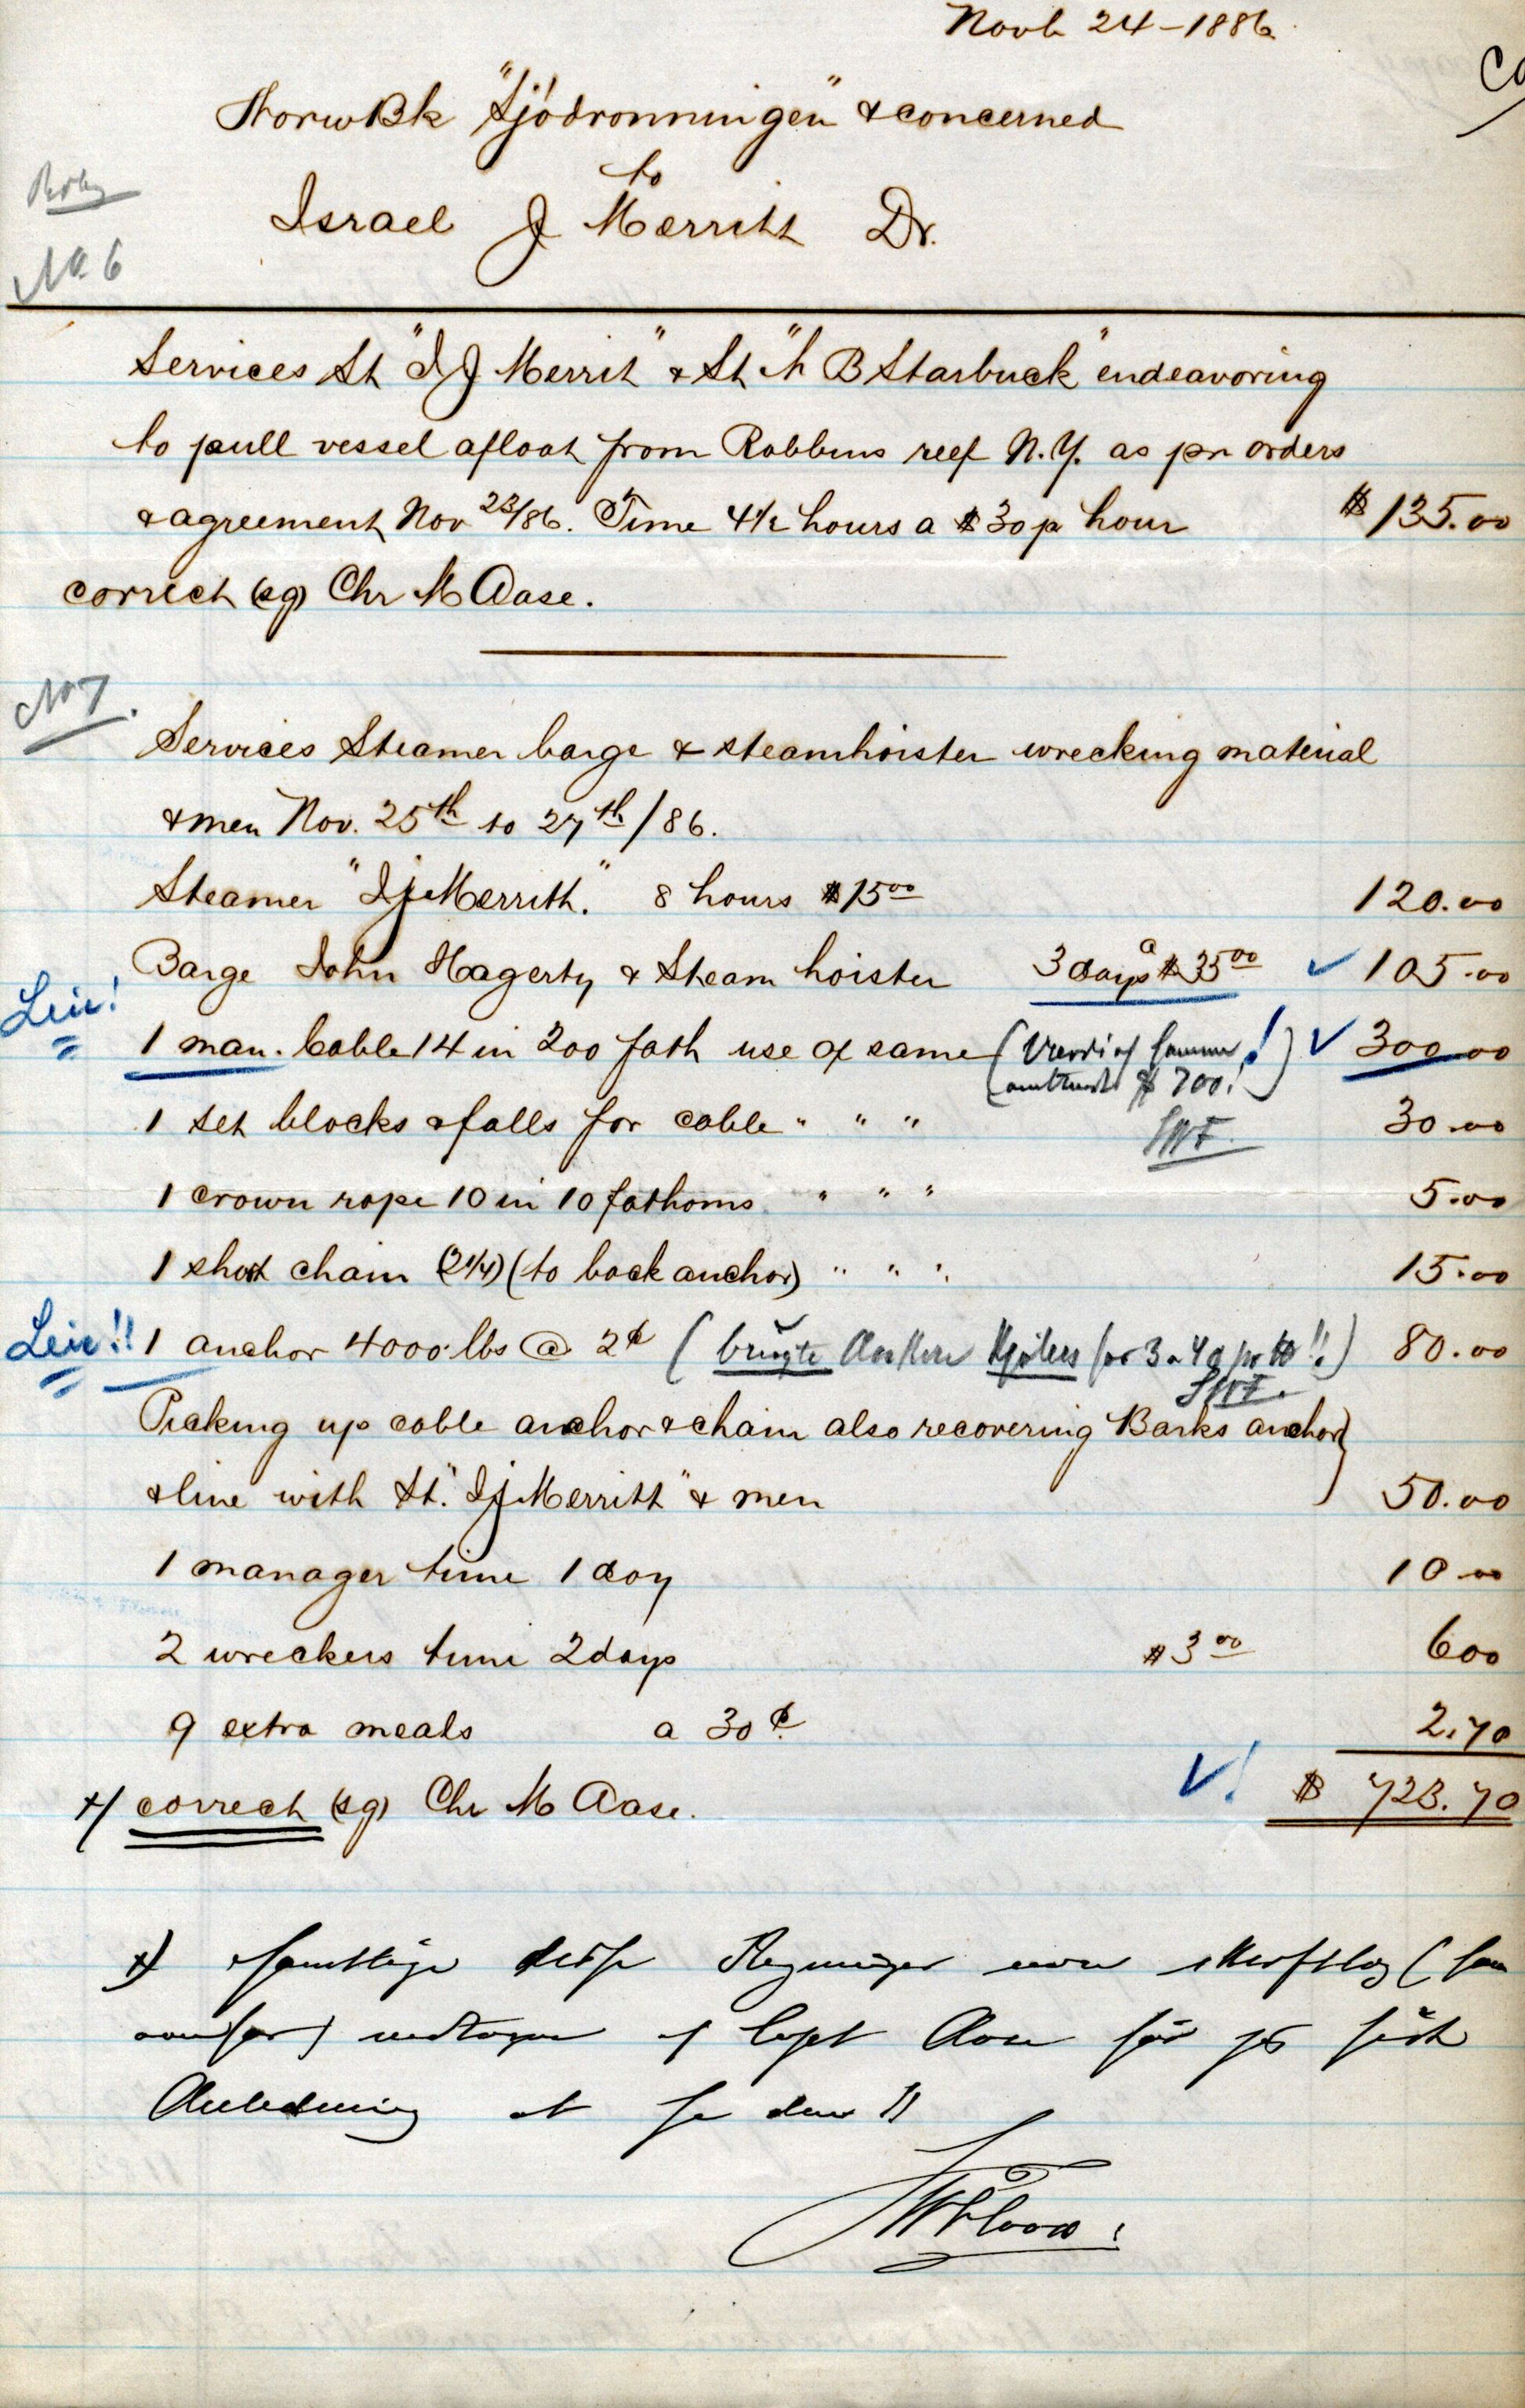 Novb 24 - 1886
Co
Norw Bk "Sjödronningen" & concerned
to
Israel J Merritt Dr.
No. 6
Services St "I J Merrit" & St "A B Starbuck" endeavoring
to pull vessel afloat from Robbins reef N.Y. as pr orders
& agreement Nov 23/86. Time 4 1/2 hours a $30 p hour $ 135.00
correct (sg) Chr M Aase.
No 7.
Services Steamer barge & steamhoister wrecking material
& men Nov. 25th to 27th/86.
Steamer "I J Merritt." 8 hours $15 00 120.00
Barge John Hagerty & Steam hoister 3 days a $35 00 ✓ 105.00
Leie! 1 man. Cable 14 in 200 fath use of same (Værdi af samme ! ) ✓ 300.00
omtrent $ 700!
1 set blocks & falls for cable " " " 30.00
SWF.
1 crown rope 10 in 10 fathoms " " " 5.00
1 short chain (2 1/4) (to back anchor) " " " 15.00
Leie!! 1 anchor 4000 lbs @ 2¢ (brugte Ankere kjöbes for 3 a 4 ¢ pr lb!!) 80.00
SWF.
Picking up cable anchor & chain also recovering Barks anchor}
& line with St. "I J Merritt" & men 50.00
1 manager time 1 day 10.00
2 wreckers time 2 days $3 00 6 00
9 extra meals a 30¢ 2.70
x/ correct (sg) Chr M Aase. ✓! $ 723.70
x) samtlige disse Regninger
af Capt Aase för jeg fik
Anledning at se dem!!
SWFlood